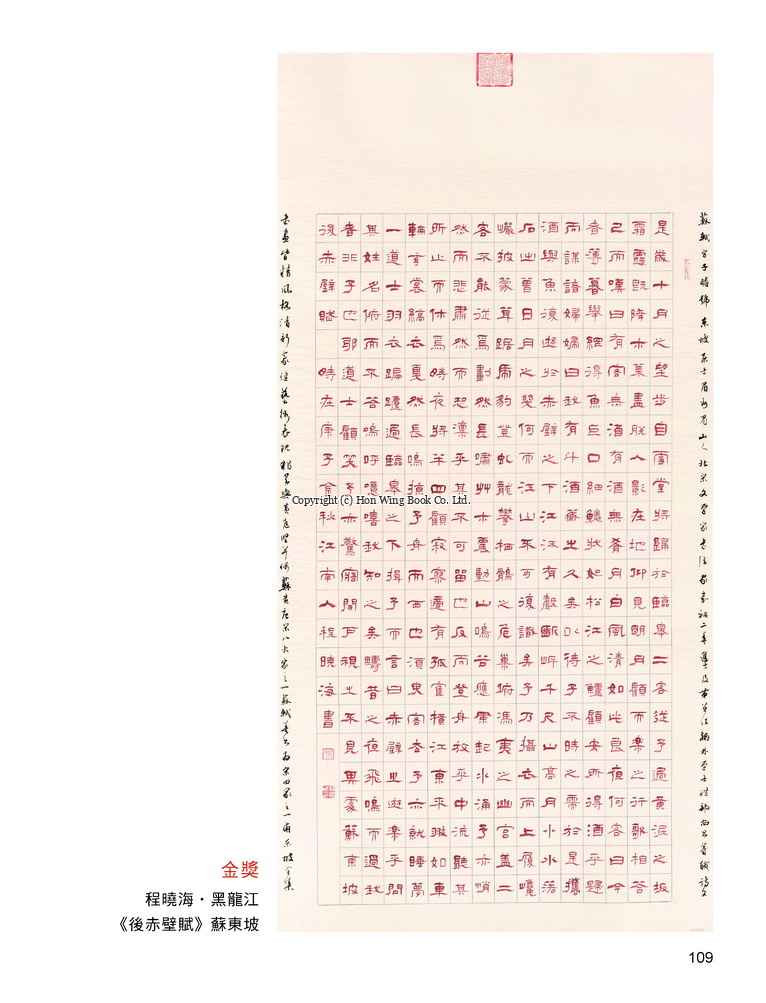 蘇軾字子瞻號東坡居士眉州眉山人北宋文學家書法家嘉祐二年進士及第曾任翰林學士禮部尚書等職詩文
是歲十月之望步自雪堂將歸於臨皋二客從予過黃泥之坂
霜露既降木葉盡脫人影在地仰見明月顧而樂之行歌相答
已而嘆曰有客無酒有酒無肴月白風清如此良夜何客曰今
者薄暮舉網得魚巨口細鱗狀如松江之鱸顧安所得酒乎歸
而謀諸婦婦曰我有斗酒藏之久矣以待子不時之需於是攜
酒與魚復遊於赤壁之下江流有聲斷岸千尺山高月小水落
石出曾日月之幾何而江山不可復識矣予乃攝衣而上履巉
巖披蒙茸踞虎豹登虬龍攀栖鶻之危巢俯馮夷之幽宮蓋二
客不能從焉劃然長嘯艸木震動山鳴谷應風起水涌予亦悄
然而悲肅然而恐凜乎其不可留也反而登舟放乎中流聽其
所止而休焉時夜將半四顧寂寥適有孤鶴橫江東來翅如車
輪玄裳縞衣戛然長鳴掠予舟而西也須臾客去予亦就睡夢
一道士羽衣蹁躚過臨皋之下揖予而言曰赤壁之遊樂乎問
其姓名俯而不答嗚呼噫嘻我知之矣疇昔之夜飛鳴而過我
者非子也耶道士顧笑予亦驚寤開戶視之不見其處蘇東坡
後赤壁賦 時在庚子金秋江南人程曉海書
書畫皆精風格清新豪健藝術表現獨具與黃庭堅並稱蘇黃唐宋八大家之一蘇軾善書為宋四家之一有東坡全集
Copyright (c) Hon Wing Book Co. Ltd.
金獎
程曉海・黑龍江
《後赤壁賦》蘇東坡
109